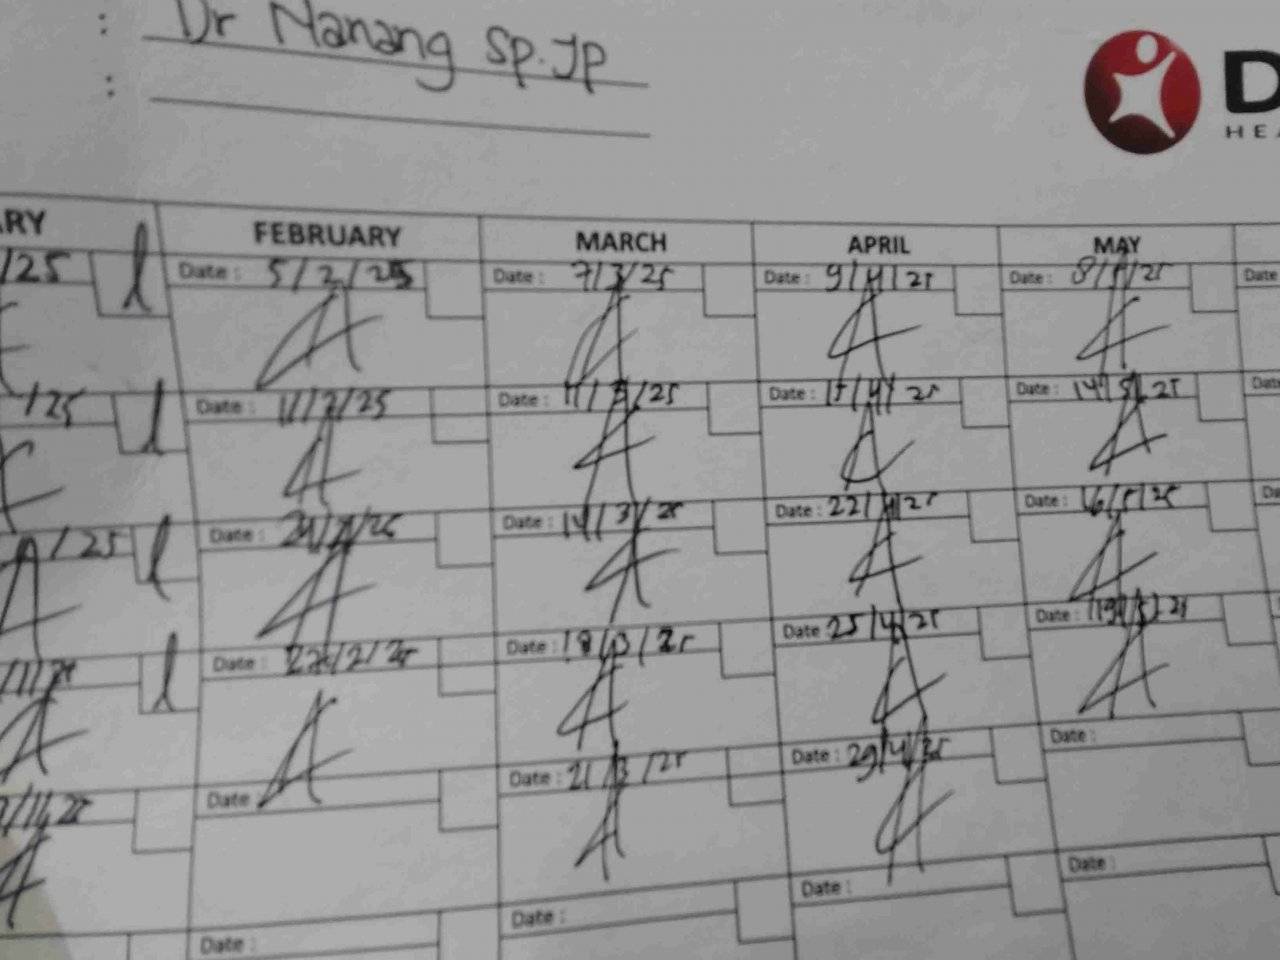 : Dr Nanang Sp.Jp
:
D
HEA
ARY FEBRUARY MARCH APRIL MAY
/25 Date: 5/2/25 Date: 7/3/25 Date: 9/4/25 Date: 8/5/25 Date
/25 Date: 11/2/25 Date: 11/3/25 Date: 15/4/25 Date: 14/5/25 Dat
/25 Date: /25 Date: 14/3/25 Date: 22/4/25 Date: 16/5/25 Da
Date: /2/25 Date: 18/3/25 Date: 25/4/25 Date: 19/5/25
Date: Date: 21/3/25 Date: 29/4/25 Date:
Date: Date: Date: Date: